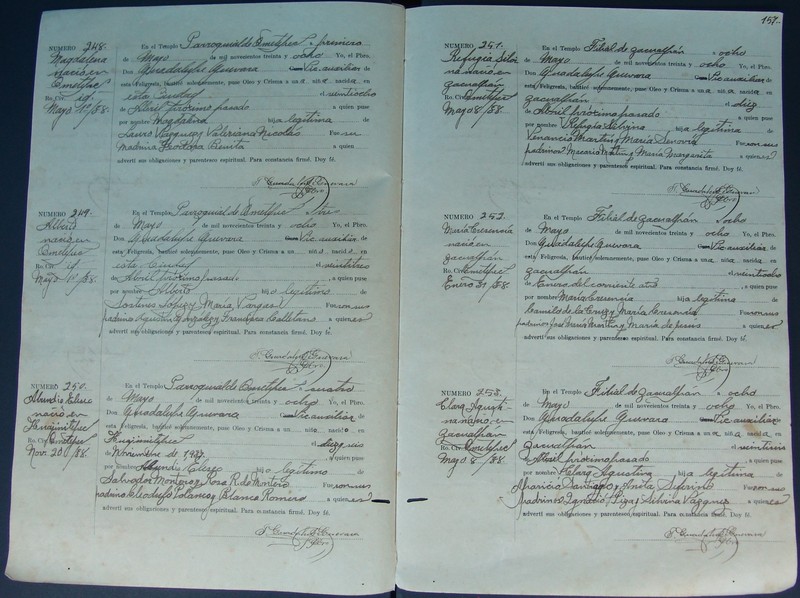 NUMERO 248.
Magdalena
nacio en
Ometepec
Ro. Civ. id
Mayo 1º/38.
En el Templo Parroquial de Ometepec a primero
de Mayo de mil novecientos treinta y ocho Yo, el Pbro.
Don J. Guadalupe Guevara Vic. auxiliar de
esta Feligresía, bauticé solemnemente, puse Oleo y Crisma a una niña nacida en
esta Ciudad el veintiocho
de Abril próximo pasado a quien puse
por nombre Magdalena hija legítima de
Lauro Vazquez y Valeriana Nicolas Fue su
madrina Teodora Benita a quien
advertí sus obligaciones y parentesco espiritual. Para constancia firmé. Doy fé.
J. Guadalupe Guevara
NUMERO 249.
Alberto
nacio en
Ometepec
Ro. Civ. id
Mayo 1º/38.
En el Templo Parroquial de Ometepec a tres
de Mayo de mil novecientos treinta y ocho Yo, el Pbro.
Don J. Guadalupe Guevara Vic. auxiliar de
esta Feligresía, bauticé solemnemente, puse Oleo y Crisma a un niño nacido en
esta Ciudad el veintitres
de Abril próximo pasado a quien puse
por nombre Alberto hijo legítimo de
Lopez y Maria Vargas Fueron sus
padrinos Agustin Gonzalez y Francisca Calletano a quienes
advertí sus obligaciones y parentesco espiritual. Para constancia firmé. Doy fé.
J. Guadalupe Guevara
NUMERO 250.
nacio en
Ro. Civ. Ometepec
Nov. 20/38.
En el Templo Parroquial de Ometepec a cuatro
de Mayo de mil novecientos treinta y ocho Yo, el Pbro.
Don J. Guadalupe Guevara Vic auxiliar de
esta Feligresía, bauticé solemnemente, puse Oleo y Crisma a un niño nacido en
el diez seis
de Noviembre de 1,937. a quien puse
por nombre hijo legítimo de
Salvador Montero y Rosa R. de Montero Fueron sus
padrinos Polanco y Blanca Romero a quienes
advertí sus obligaciones y parentesco espiritual. Para constancia firmé. Doy fé.
J. Guadalupe Guevara
157.
NUMERO 251.
Refugia Silvi
na nacio en
Zacualpan
Ro. Civ. Ometepec
Mayo 8/38
En el Templo Filial de Zacualpán a ocho
de Mayo de mil novecientos treinta y ocho Yo, el Pbro.
Don J. Guadalupe Guevara Vic auxiliar de
esta Feligresía, bauticé solemnemente, puse Oleo y Crisma a una niña nacida en
Zacualpán el diez
de Abril próximo pasado a quien puse
por nombre Refugia Silvina hija legítima de
Venancio Martin y Maria Genova Fueron sus
padrinos Macario Martin y Maria Margarita a quienes
advertí sus obligaciones y parentesco espiritual. Para constancia firmé. Doy fé.
J. Guadalupe Guevara
NUMERO 252.
María Cresencia
nació en
Zacualpán
Ro. Civ. Ometepec
Enero 31/38
En el Templo Filial de Zacualpán a ocho
de Mayo de mil novecientos treinta y ocho Yo, el Pbro.
Don J. Guadalupe Guevara Vic. auxiliar de
esta Feligresía, bauticé solemnemente, puse Oleo y Crisma a una niña nacida en
Zacualpán el veintiocho
de Enero del corriente año a quien puse
por nombre Maria Cresencia hija legítima de
Camilo de la Cruz y María Cresencia Fueron sus
padrinos José Jesús Martin y Maria de Jesus a quienes
advertí sus obligaciones y parentesco espiritual. Para constancia firmé. Doy fé.
J. Guadalupe Guevara
NUMERO 253.
Clara Agusti-
na nacio en
Zacualpan
Ro. Civ. Ometepec
Mayo 8/38.
En el Templo Filial de Zacualpán a ocho
de Mayo de mil novecientos treinta y ocho Yo, el Pbro.
Don J. Guadalupe Guevara Vic auxiliar de
esta Feligresía, bauticé solemnemente, puse Oleo y Crisma a una niña nacida en
Zacualpán el
de Abril próximo pasado a quien puse
por nombre Clara Agustina hija legítima de
Aparicio Santiago y Anita Severina Fueron sus
padrinos Ignacio y Silvina Vazquez a quienes
advertí sus obligaciones y parentesco espiritual. Para constancia firmé. Doy fé.
J. Guadalupe Guevara